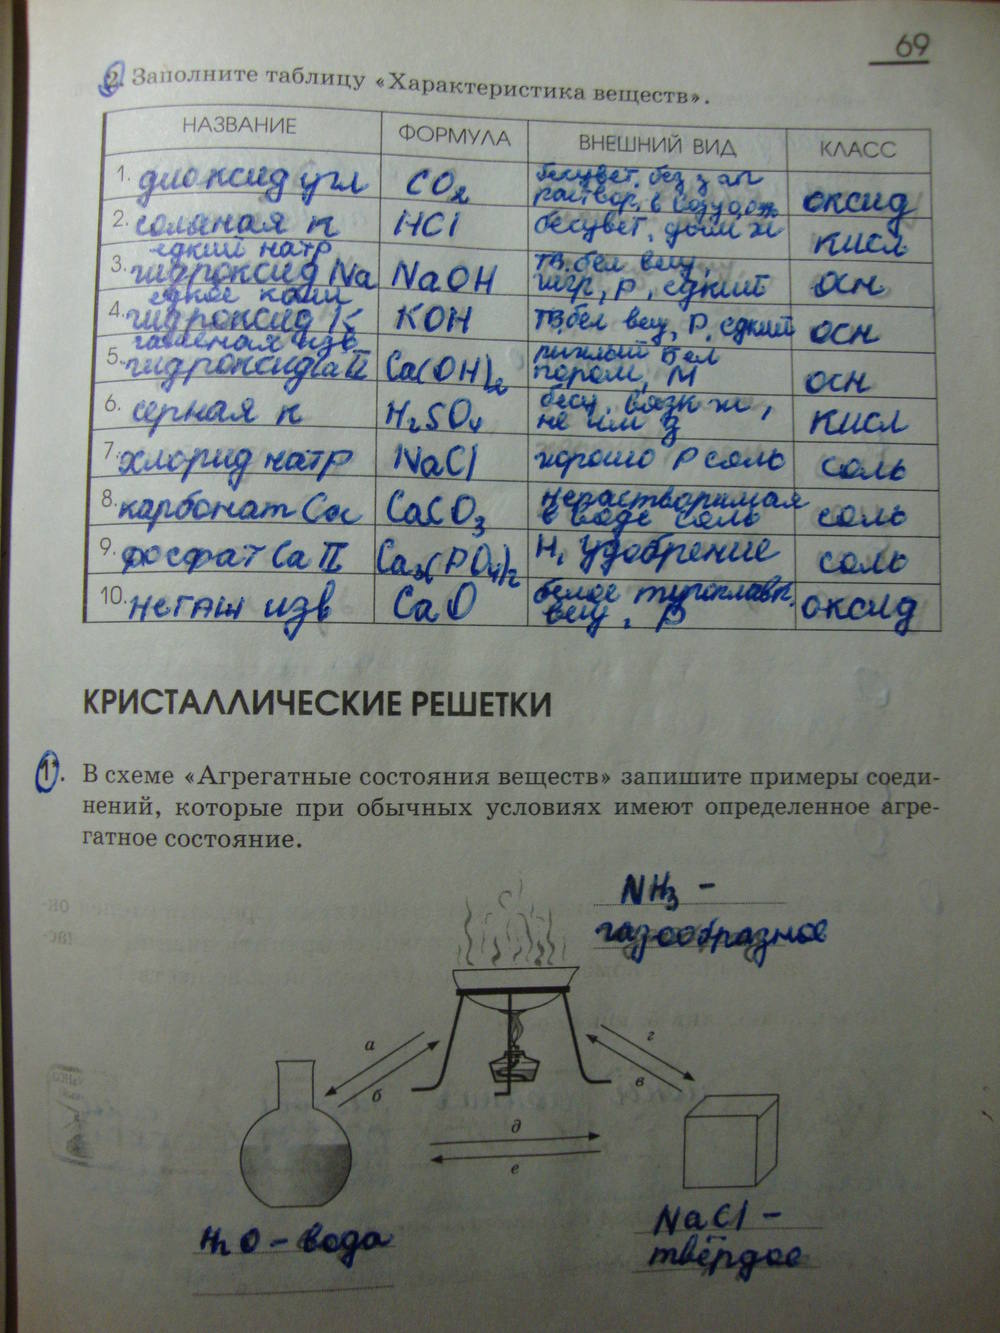 69
2. Заполните таблицу «Характеристика веществ».
НАЗВАНИЕ ФОРМУЛА ВНЕШНИЙ ВИД КЛАСС
1. диоксид угл CO2 бесцвет, без зап оксид
раствор, в воду, ож
2. соляная к HCl бесцвет, дым ж кисл
едкий натр
3. гидроксид Na NaOH тв. бел вещ, осн
гигр, Р, едкий
едкое кали
4. гидроксид K KOH тв бел вещ, Р, едкий осн
гашеная изв
5. гидроксид Ca II Ca(OH)2 рыхлый бел осн
порош, М
6. серная к H2SO4 бесц, вязк ж, кисл
не им з
7. хлорид натр NaCl хорошо Р соль соль
8. карбонат Ca CaCO3 нерастворимая соль
в воде соль
9. фосфат Ca II Ca3(PO4)2 Н, удобрение соль
10. негаш изв CaO белое тугоплавк. оксид
вещ, Р
КРИСТАЛЛИЧЕСКИЕ РЕШЕТКИ
1*. В схеме «Агрегатные состояния веществ» запишите примеры соеди-
нений, которые при обычных условиях имеют определенное агре-
гатное состояние.
NH3 -
газообразное
а
б
г
в
д
е
H2O - вода
NaCl -
твёрдое